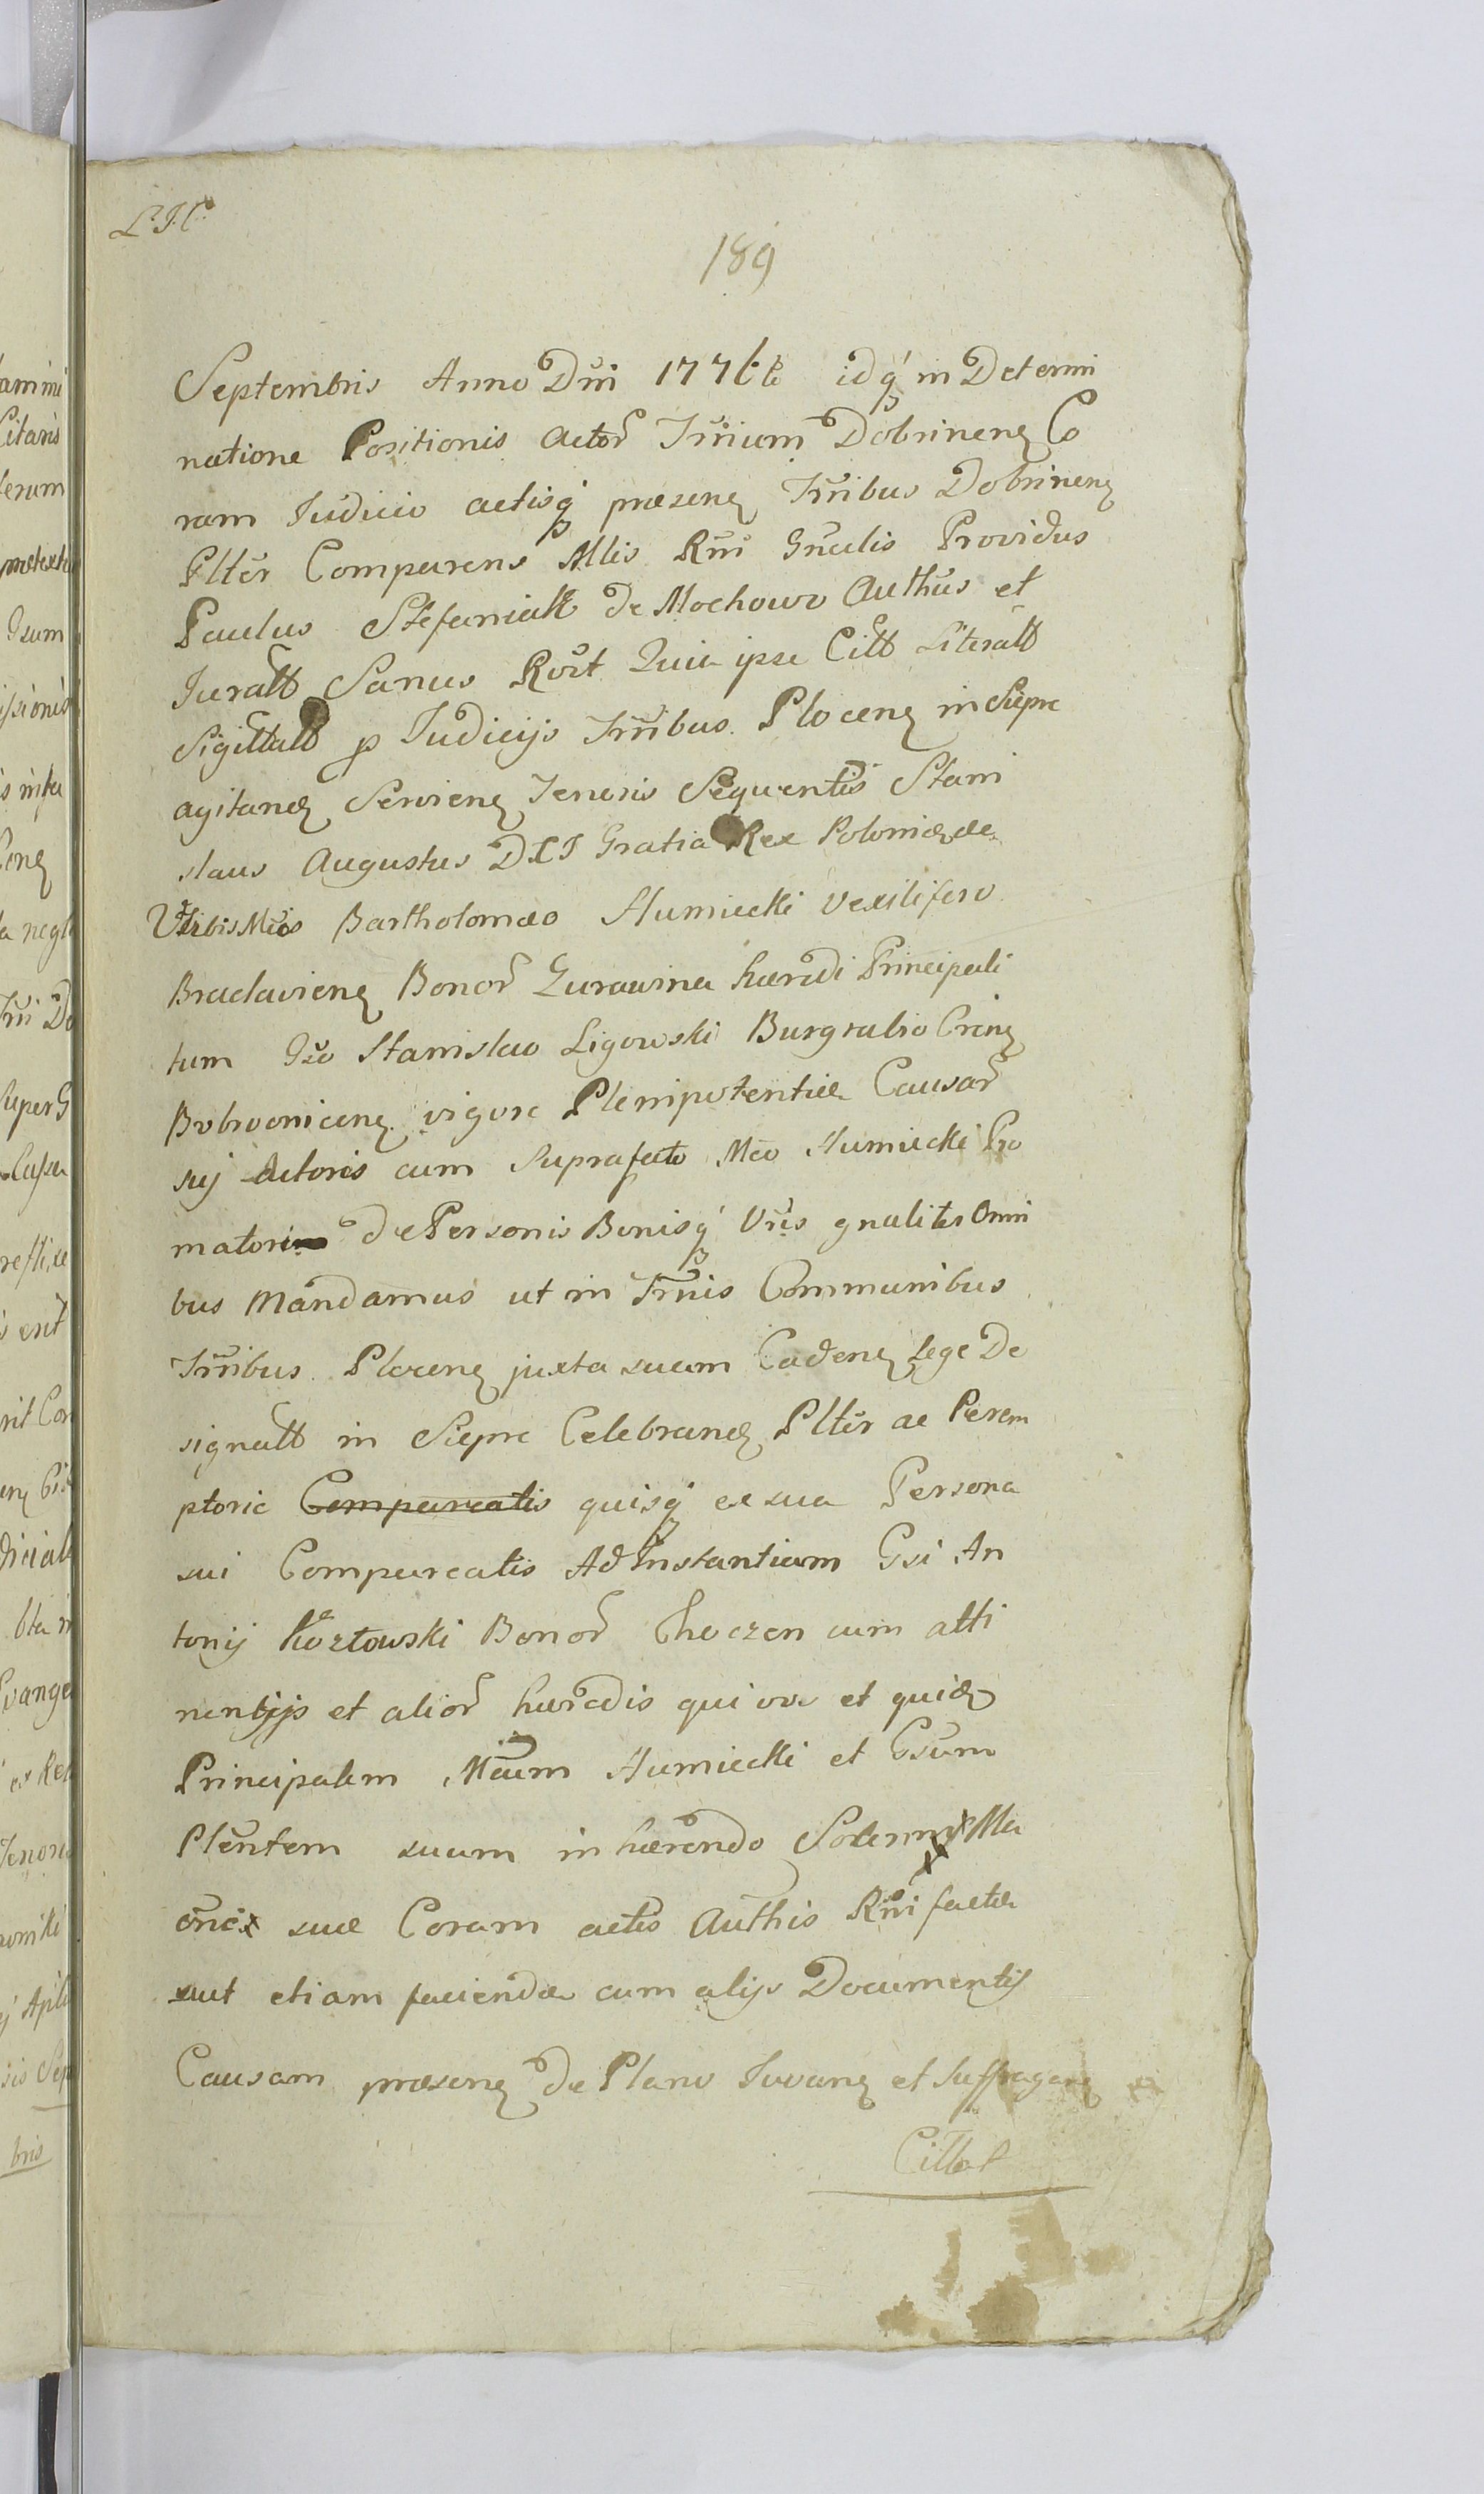 189
Septembris Anno Dni 1776to idq in Determi
natione Positionis Actor Trrium Dobrinen Co
ram Judicio actisq præsen Trribus Dobrinen
Plter Comparens Mlis Rni Gnalis Providus
Paulus Stefaniak de Mochowo Authus et
Juratt Sanus Rort Quia ipse Citt Literatt
Sigillatt p Judicijs Trribus Plocen in Siepre
agitand Servien Tenoris Sequentis Stani
slaus Augustus DEI Gratia Rex Poloniæ
Vribis Mcis Bartholomæo Humiecki Vexilifero
Braclavien Bonor Zurawina hæredi Principali
tum Gso Stanislao Ligowski Burgrabio Cren
Bobrovnicen vigore Plenipotentiæ Causar
sui Actoris cum Suprafato Mco Humiecki Pro
matori de Personis Bonisq Vris gnaliter Omni
bus Mandamus ut in Trnis Communibus
Trribus Plocen juxta suum Caden lege De
signatt in Siepre Celebrand Plter ac Perem
ptorie Compareatis quisq ex sua Persona
sui Compareatis Ad Instantiam Gsi An
tonij Kozłowski Bonor Choczen cum atti
nentijs et alior hæredis qui vos et quid
Principalem Mcum Humiecki et Gsum
Plentem suum inhærendo Solenni Ma
oni suæ Coram actis Authis Rni factæ
aut etiam faciendæ cum alijs Documentis
Causam præsen de Plano Juvan et suffragan
Cittat